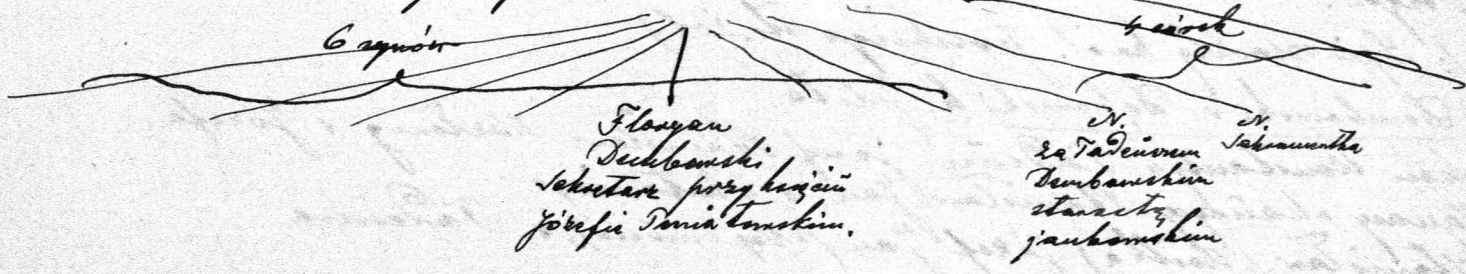 6 synów
4 córek
Floryan
Dembowski
Sekretarz przy księciu
Józefie Poniatowskim.
N.
za Tadeuszem
Dembowskim
starostą
jambowskim
N.
Sakramentka